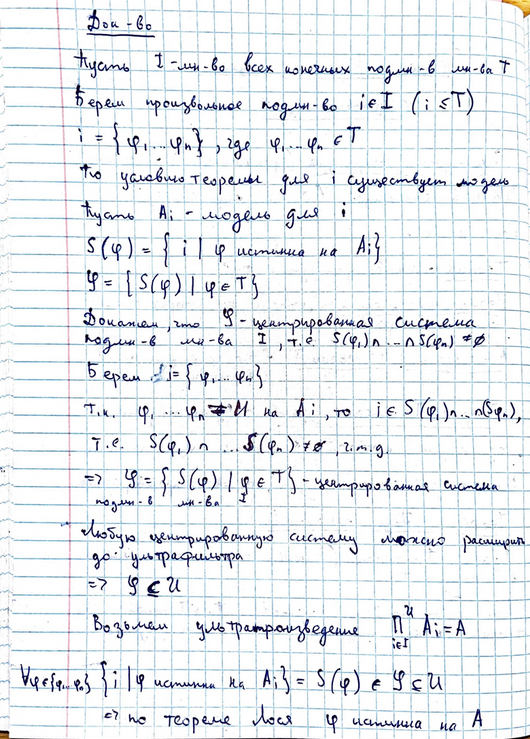 Док-во
Пусть I-мн-во всех конечных подмн-в мн-ва T
Берем произвольное подмн-во i∈I (i⊆T)
i = {φ₁...φₙ}, где φ₁...φₙ ∈T
По условию теоремы для i существует модель
Пусть Aᵢ - модель для i
S(φ) = {i | φ истинна на Aᵢ}
𝒮 = {S(φ) | φ ∈ T}
Докажем, что 𝒮-центрированная система
подмн-в мн-ва I, т.е. S(φ₁)∩...∩S(φₙ) ≠∅
Берем j={φ₁...φₙ}
т.к. φ₁...φₙ = И на Aᵢ, то i∈S(φ₁)∩..∩(Sφₙ),
т.е. S(φ₁)∩...S(φₙ) ≠∅, ч.т.д.
=> 𝒮 = {S(φ) | φ ∈ T}-центрированная система
подмн-в мн-ва I
Любую центрированную систему можно расширить
до ультрафильтра
=> 𝒮 ⊆ U
Возьмем ультрапроизведение ∏ᵁ Aᵢ = A
i∈I
∀φ∈{φ₁..φₙ} {i | φ истинна на Aᵢ} = S(φ) ∈ 𝒮 ⊆ U
=> по теореме Лося φ истинна на A